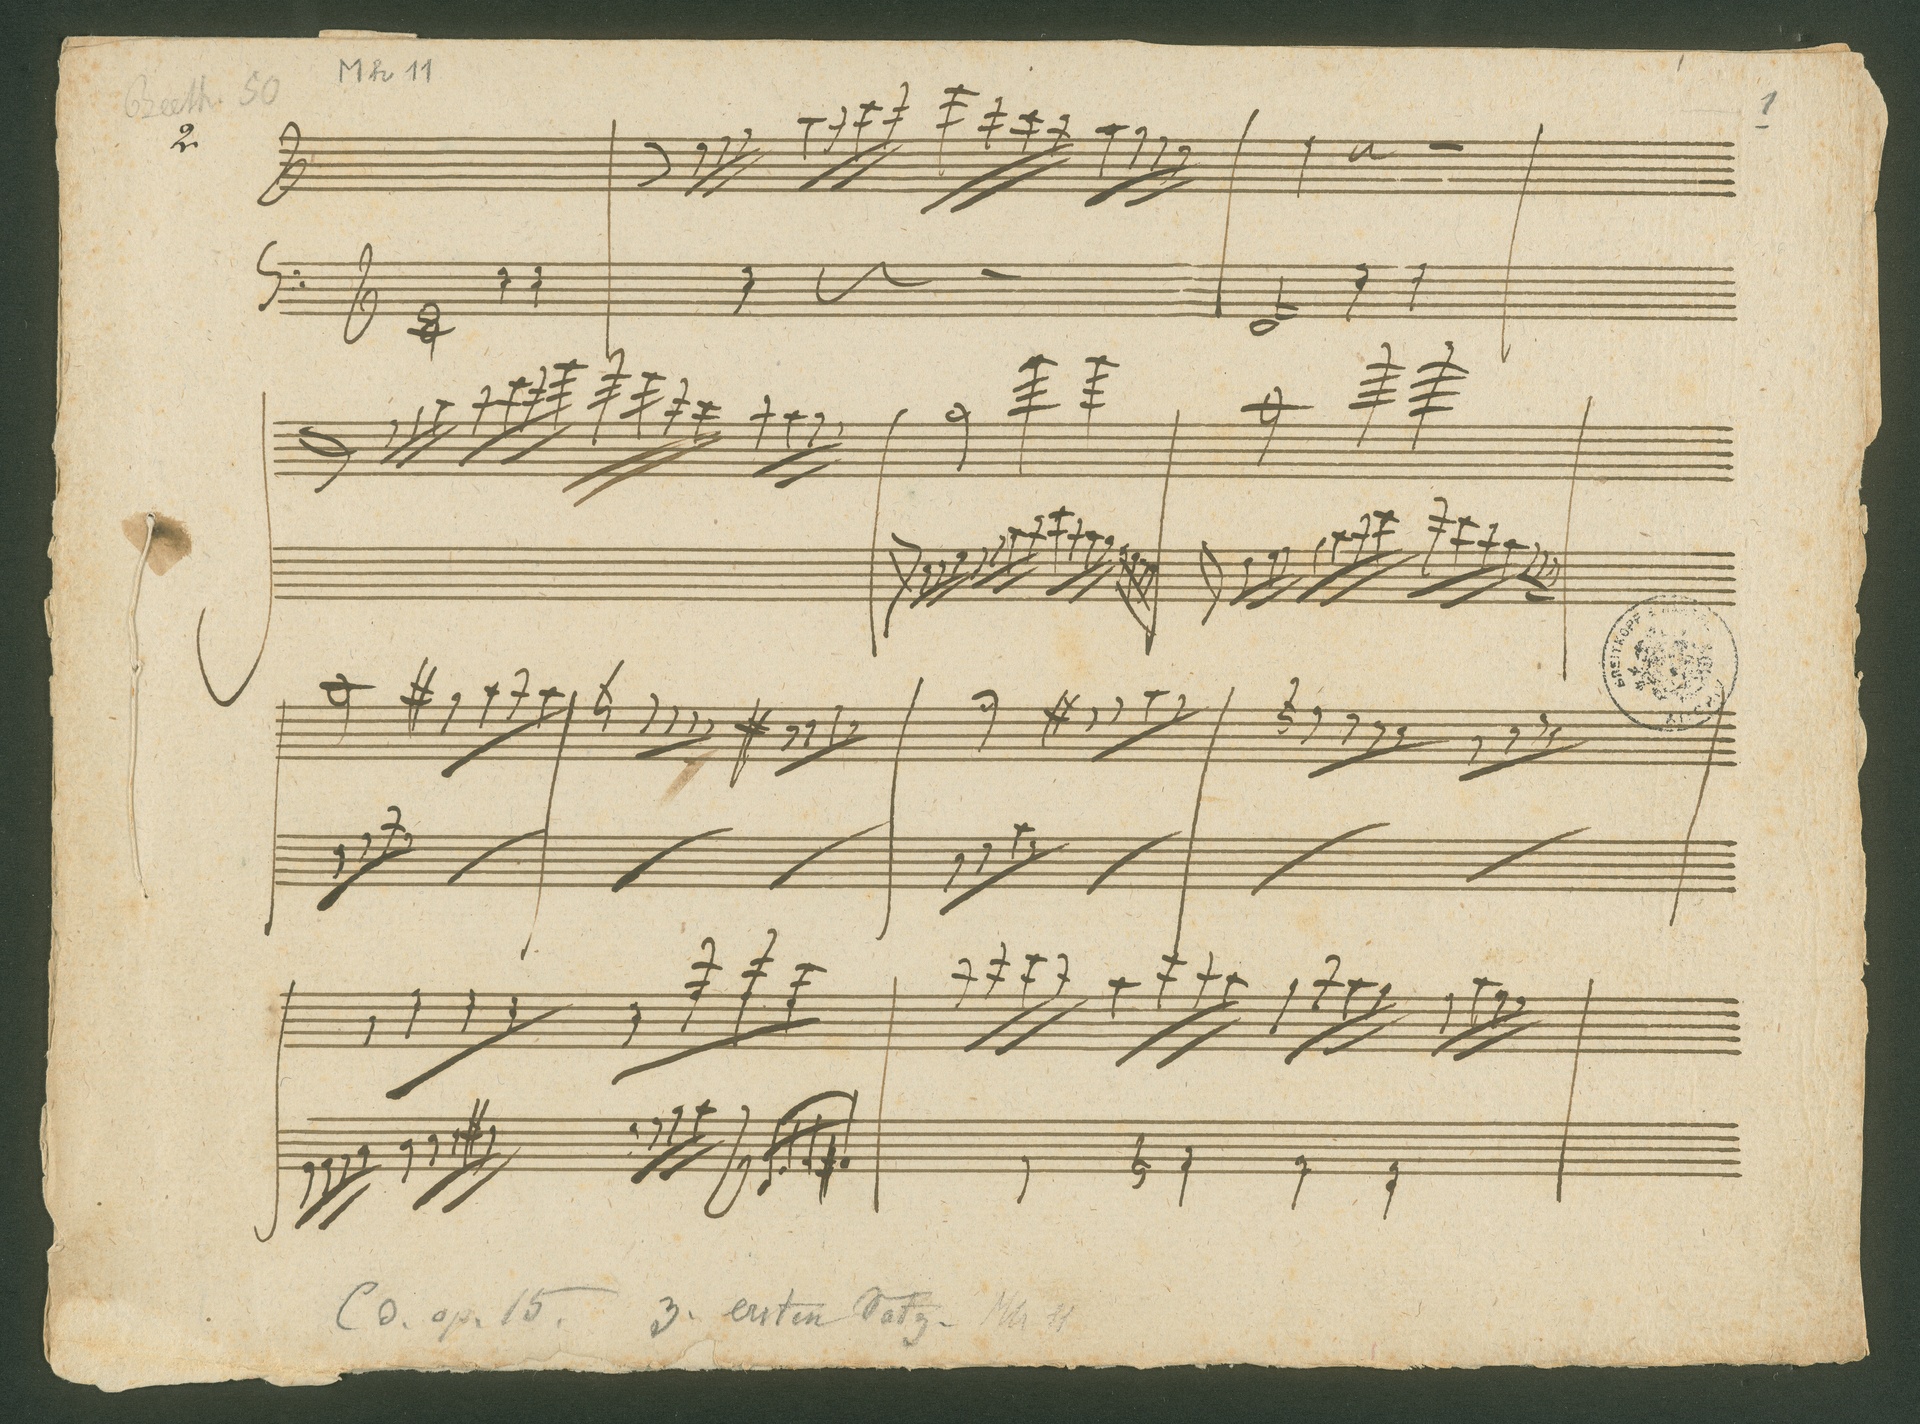 Beeth. 50 Mh 11
1
2.
BREITKOPF
Co. op. 15. z. ersten Satz. Mh 11